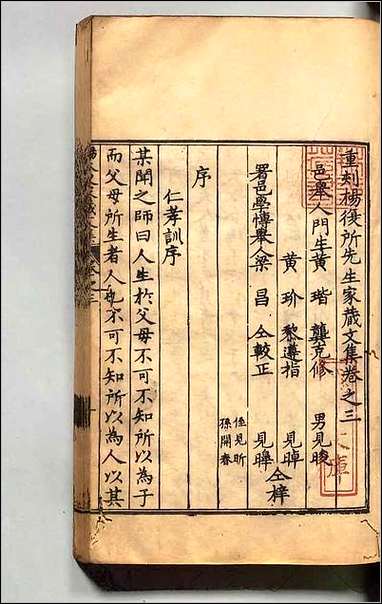 重刻楊復所先生家藏文集卷之三
邑舉人門生黃 瑎 龔克修 男見晙
黃 玠 黎遵指 見晫
署邑學博舉人梁 昌 仝較正 見皞 仝梓
侄見昕
孫開春
序
仁孝訓序
某聞之師曰人生於父母不可不知所以為子
而父母所生者人也不可不知所以為人以其